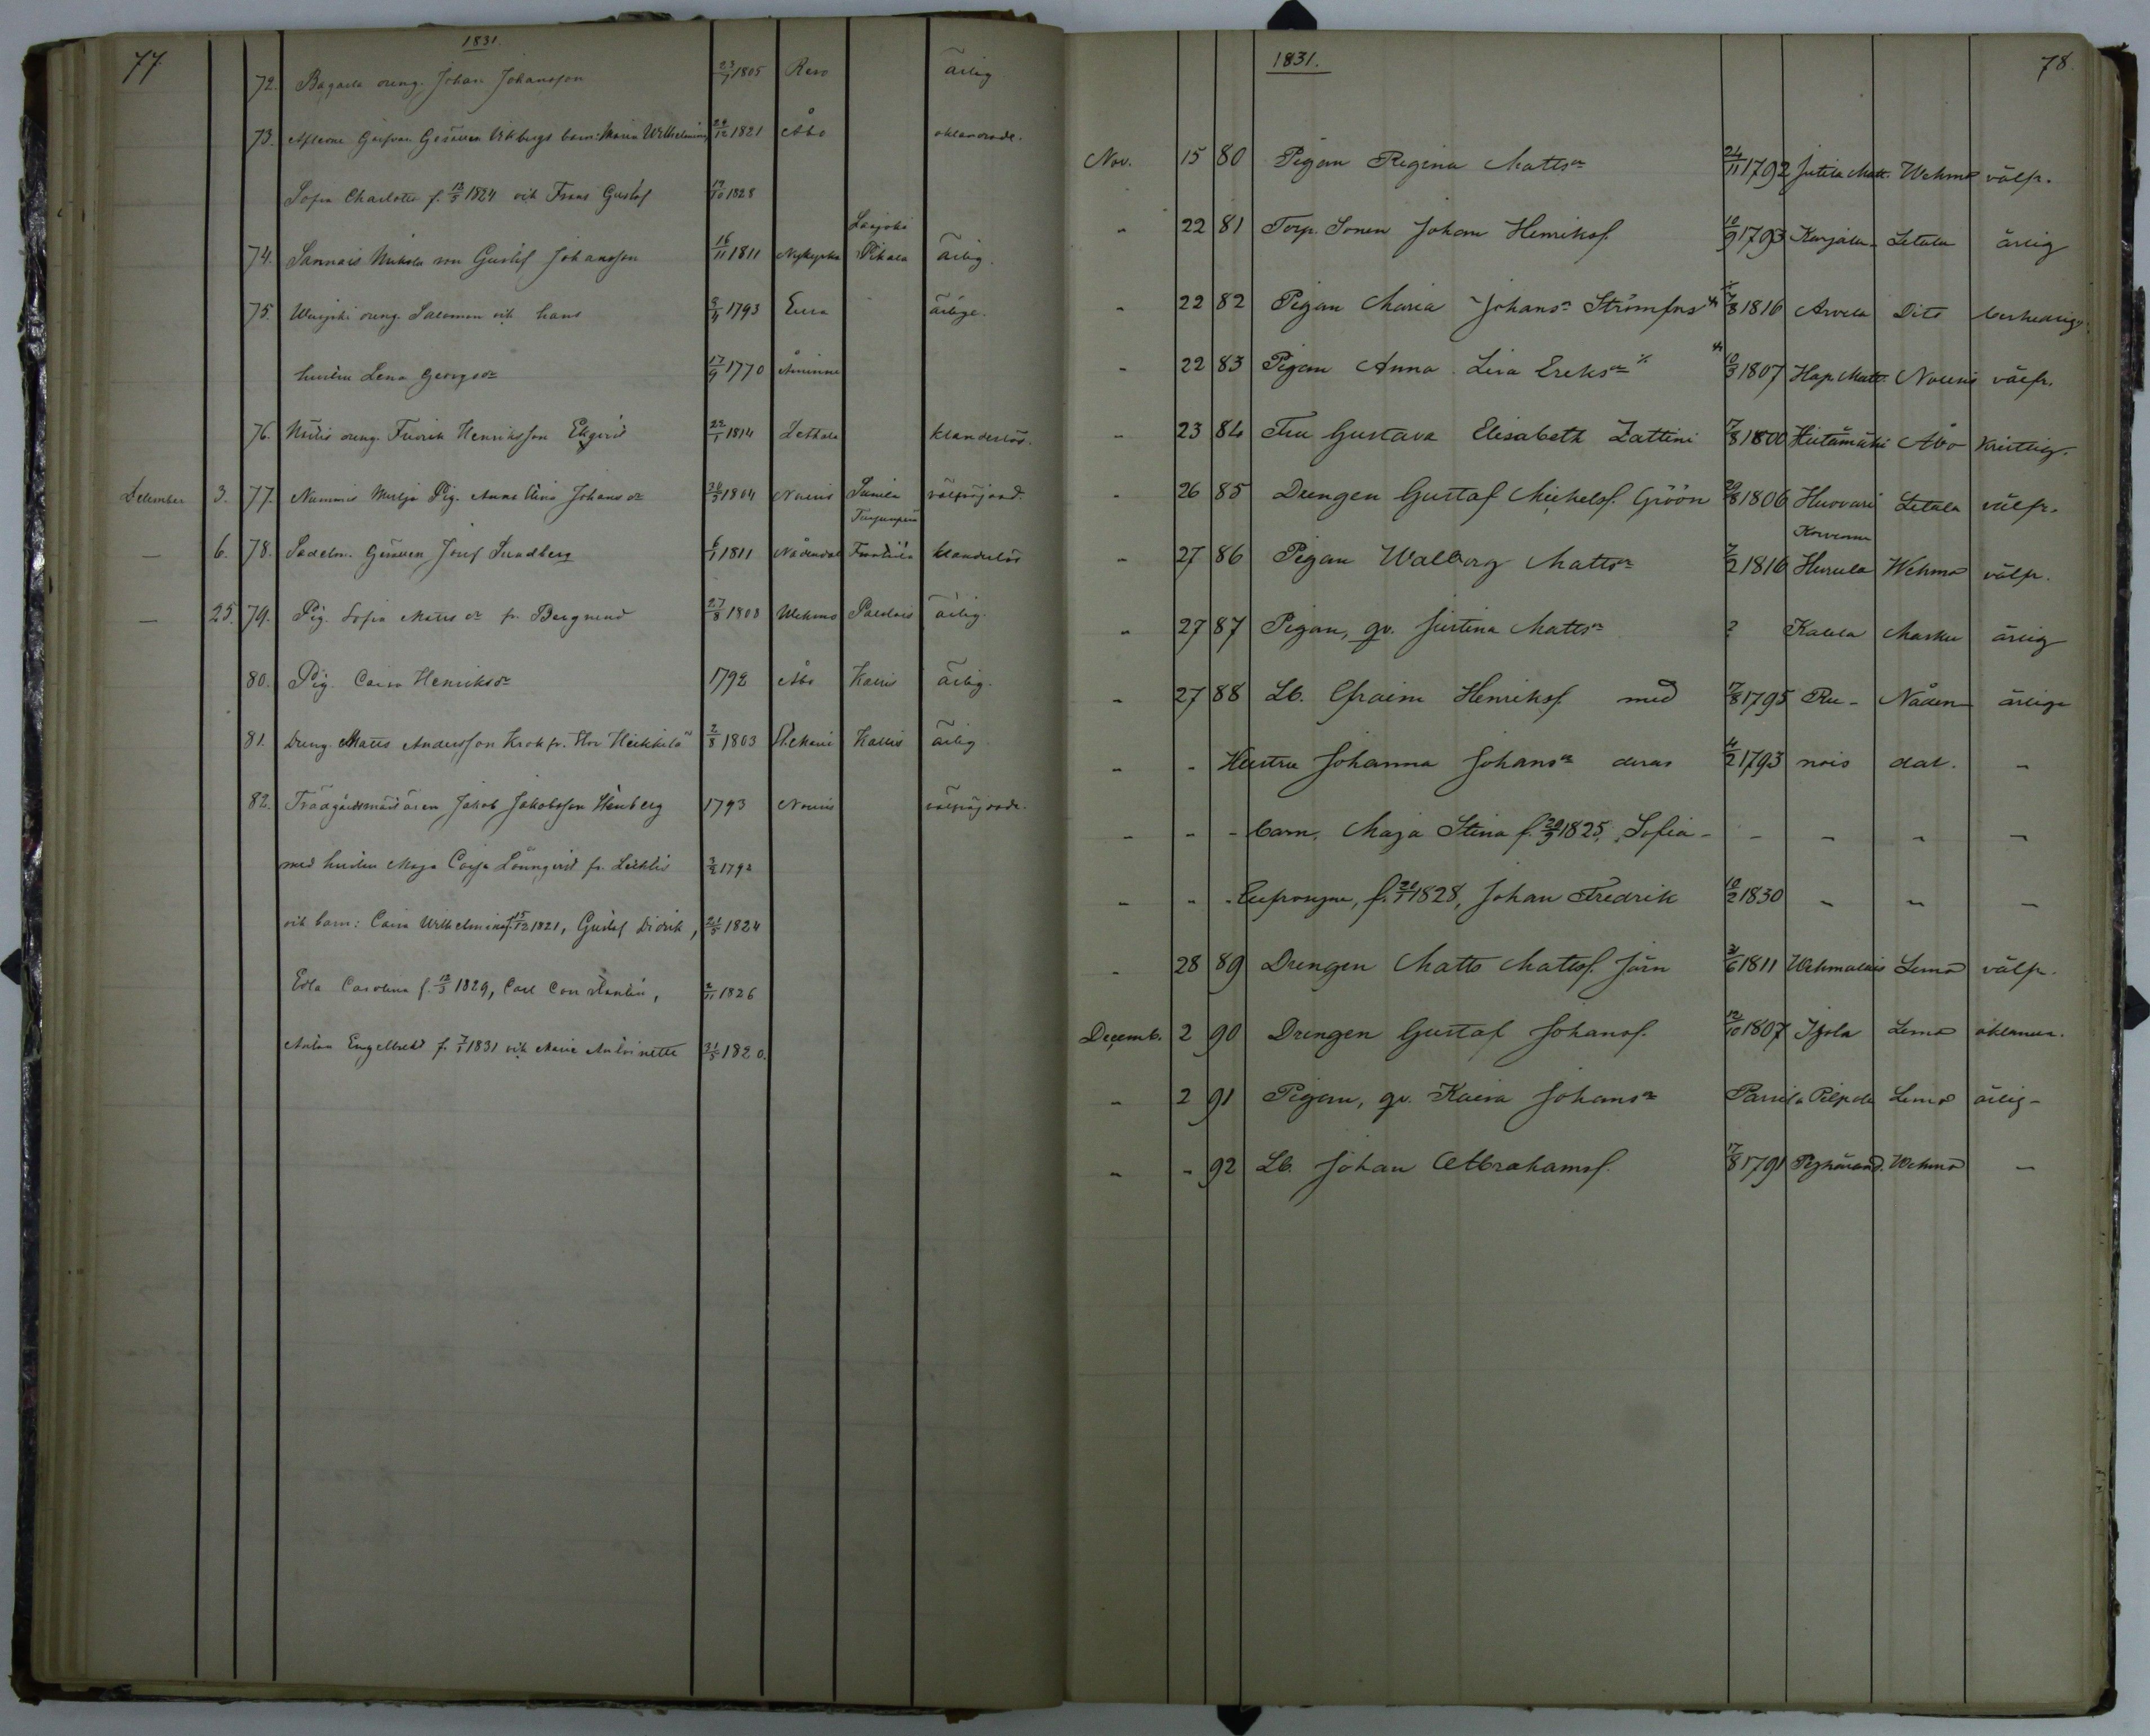 77
1831.
72. Bagala dreng. Johan Johansson 23/1 1805 Reso ärlig
73. Aflidne Gesällen barn: Maria Wilhelmina 24/12 1821 Åbo oklandrade.
Sofia Charlotta f. 13/5 1824 och Frans Gustaf 19/10 1828
74. Sannais Mikola son Gustaf Johansson 16/11 1811 Nykyrka Pikala ärlig.
75. dreng. Salomon och hans 1793 Eura ärlige.
hustru Lena Georgsdr 17/9 1770
76. dreng. Fredrik Henriksson Eqvist 22/1 1814 Lethala klanderlös.
December 3. 77. Nummis Pig. Anna Stina Johansdr 1804 Nousis välfräjdad.
— 6. 78. Gesällen Josef Sundberg 6/1 1811 Nådendal klanderlös
— 25. 79. Pig. Sofia Matts dr fr. Bergrund 27/8 1808 Wehmo ärlig.
80. Pig. Caisa Henriksdr 1792 Åbo Kallis ärlig.
81. Dreng. Matts Andersson Krok fr. Stor Heikkilä 2/8 1803 St. Marie Kallis ärlig
82. Trädgårdsmästaren Jakob Jakobsson Stenberg 1793 Nousis välfräjdade.
med hustru Maja Caisa Lönnqvist fr. 1792
och barn: Caisa Wilhelmina f. 15/12 1821, Gustaf Didrik, 21/5 1824
Edla Carolina f. 12/3 1829, Carl Constantin, 2/11 1826
Anton Engelbrekt f. 7/1 1831 och Marie Antoinette 31/5 1820.
1831.
78.
Nov. 15 80 Pigan Regina Mattsdr 24/11 1792 Jutila Matt. Wehmo välfr.
" 22 81 Torp. Sonen Johan Henriksf. 10/9 1793 Karjala Letala ärlig
" 22 82 Pigan Maria Johansdr Strömfors 7/8 1816 Arvela Dito
" 22 83 Pigan Anna Lisa Ereksdr 10/3 1807 Nousis välfr.
" 23 84 Fru Gustava Elisabeth Zattini 7/8 1800 Hiitämäki Åbo kristlig.
" 26 85 Drengen Gustaf Michelsf. Gröön 29/8 1806 Huovari Letala välfr.
" 27 86 Pigan Walborg Mattsdr 7/2 1816 Korvenna Hurula Wehmo välfr.
" 27 87 Pigan, qv. Justina Mattsdr ? Kalela Masku ärlig
" 27 88 Lb. Efraim Henriksf. med 17/8 1795 Ru- Nåden- ärlige
" " Hustru Johanna Johansdr deras 4/2 1793 nois dal. "
" " " barn, Maja Stina f. 20/9 1825, Sofia - " " " "
" " " Eufrosyne, f. 21/7 1828, Johan Fredrik 10/2 1830 " " "
" 28 89 Drengen Matts Mattsf. Järn 3/6 1811 Wehmalais Lemo välfr.
Decemb. 2 90 Drengen Gustaf Johansf. 12/10 1807 Ijola Lemo
" 2 91 Pigan, qv. Kaisa Johansdr Parsila Pilpola Lemo ärlig -
" " 92 Lb. Johan Abrahamsf. 17/8 1791 Wehmo "